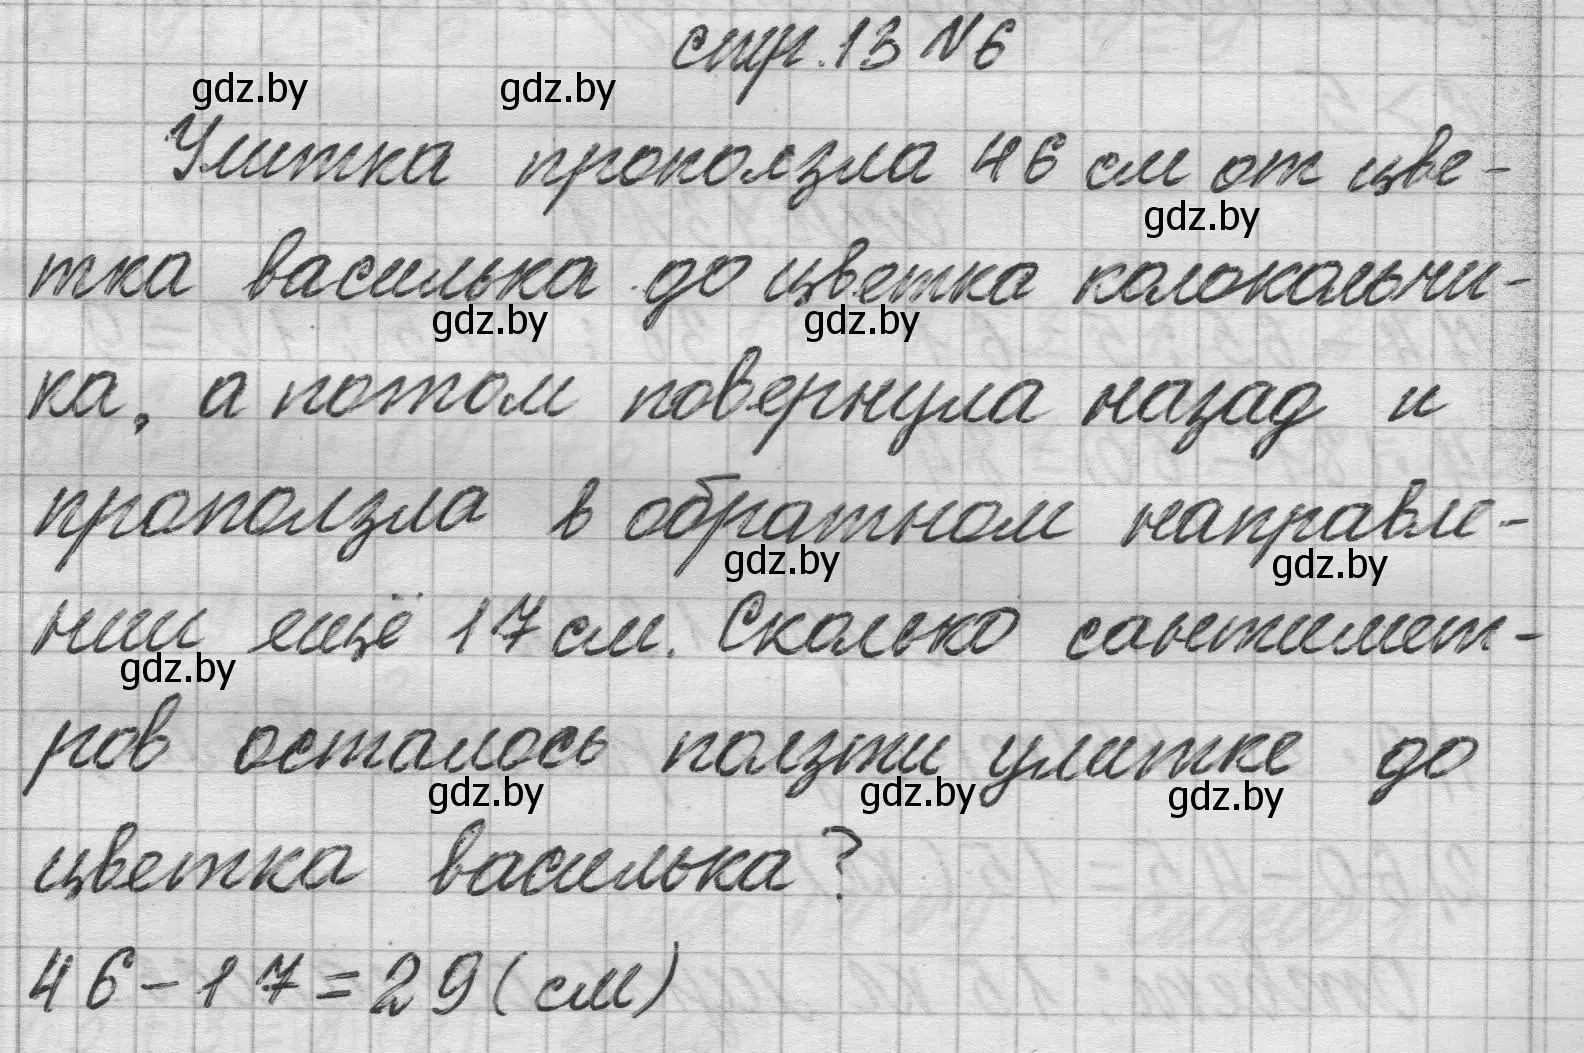 стр. 13 N 6
gdz.by gdz.by
Улитка проползла 46 см от цве-
gdz.by
тка василька до цветка колокольчи-
gdz.by gdz.by
ка, а потом повернула назад и
проползла в обратном направле-
gdz.by gdz.by
нии ещё 17 см. Сколько сантимет-
gdz.by
ров осталось ползти улитке до
gdz.by gdz.by gdz.by
цветка василька?
46 - 17 = 29 (см)